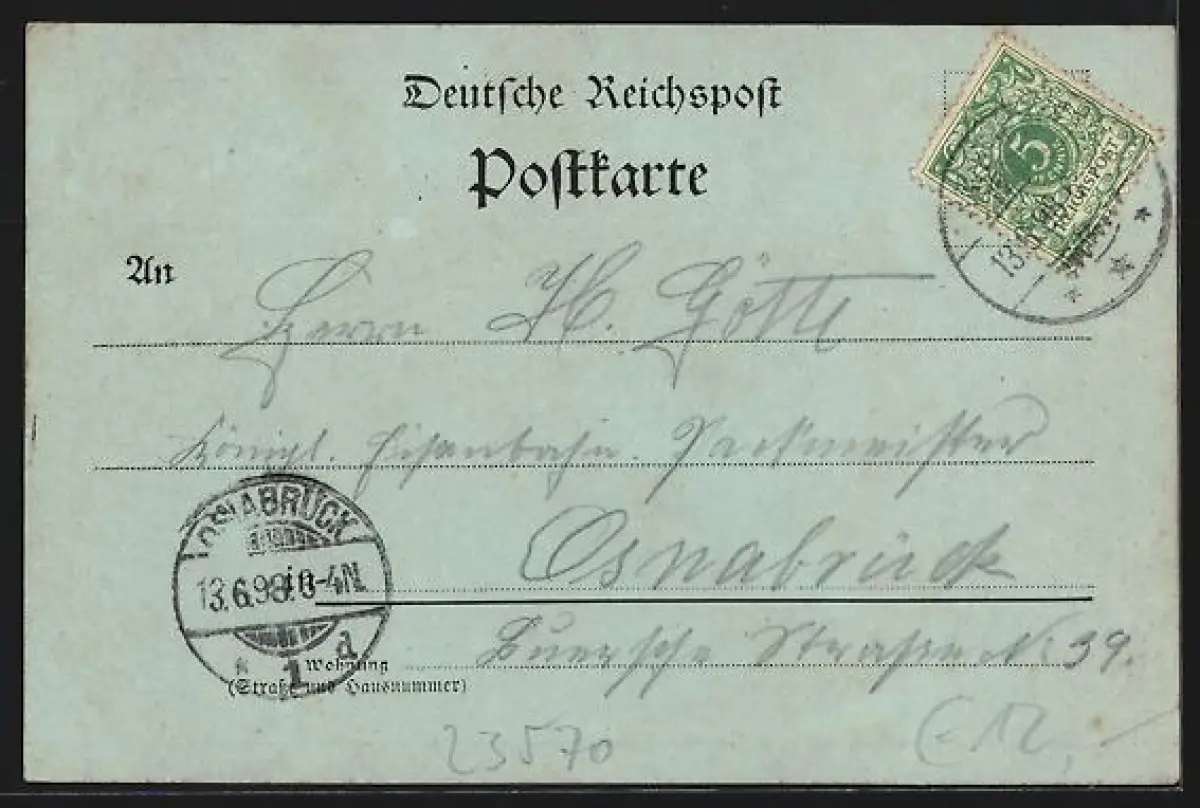 Deutsche Reichspost
Postkarte
5
REICHSPOST
13
An
Herrn H. Götte
Königl. Eisenbahn. Packmeister
OSNABRÜCK
in Osnabrück
13.6.98. -4N.
1 a
Buersche Straße N: 39.
Wohnung
(Straße und Hausnummer)
23570
€ 12,-